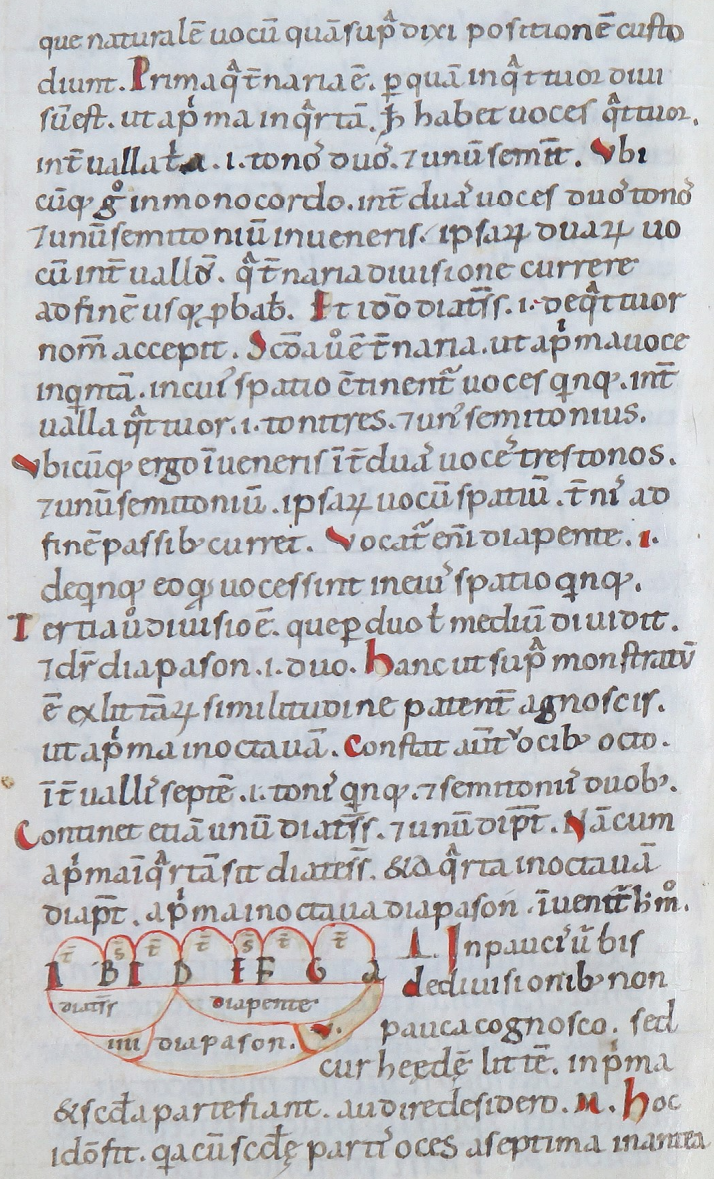 que naturalē uocū quā sup̄ dixi positionē custo
diunt. Prima q̄t̄naria ē. p̱ quā in q̄ttuor diui
sū est. ut a p̍ma in q̄rtā. habet uoces q̄ttuor.
int̄ualla .i. tonos duos. ⁊ unū semit̄. Vbi
cūq; g̊ in monocordo. int̄ duas uoces duos tonos
⁊ unū semitoniū inueneris. ipsaꝝ duaꝝ uo
cū int̄uallū. q̄t̄naria diuisione currere
ad finē usq; ꝓbab̄. Et idō diat̄ss̄. .i. de q̄ttuor
nom̄ accepit. Scd̄a ů ē t̄naria. ut a p̍ma uoce
in qntā. in cuiꝰ spatio c̄tinent᷑ uoces qnq;. int̄
ualla q̄ttuor. .i. toni tres. ⁊ unꝰ semitonius.
Vbicūq; ergo īueneris īt̄ duas uoces tres tonos.
⁊ unū semitoniū. ipsaꝝ uocū spatiū. t̄nis ad
finē passib; curret. Vocat᷑ eni diapente. .i.
de qnq; eo qđ uoces sint in eiuꝰ spatio qnq;.
Tertia ů diuisio ē. que p̱ duo ł mediū diuidit.
⁊ dr̄ diapason .i. duo. Hanc ut sup̄ monstratū
ē ex litt̄aꝝ similitudine patent̄ agnoscis.
ut a p̍ma in octauā. Constat aūt uocib; octo.
īt̄uallis septē. .i. tonis qnq;. ⁊ semitoniis duob;.
Continet etiā unū diat̄ss̄. ⁊ unū dip̄t̄. Nā cum
a p̍ma ī q̄rtā sit diatess̄. & a q̄rta in octauā
diap̄t̄. a p̍ma in octaua diapason īuenit᷑ h̄m̊.
t̄ s̄ t̄ t̄ s̄ t̄ t̄
A B C D E F G a
diat̄ss̄ diapente
iiii diapason. v.
Δ. In paucis ů bis
de diuisionib; non
pauca cognosco. sed
cur heędē litt̄ę. in p̍ma
& scd̄a parte fiant. audire desidero. M. Hoc
idō fit. qa cū scd̄ę partis uoces a septima in antea